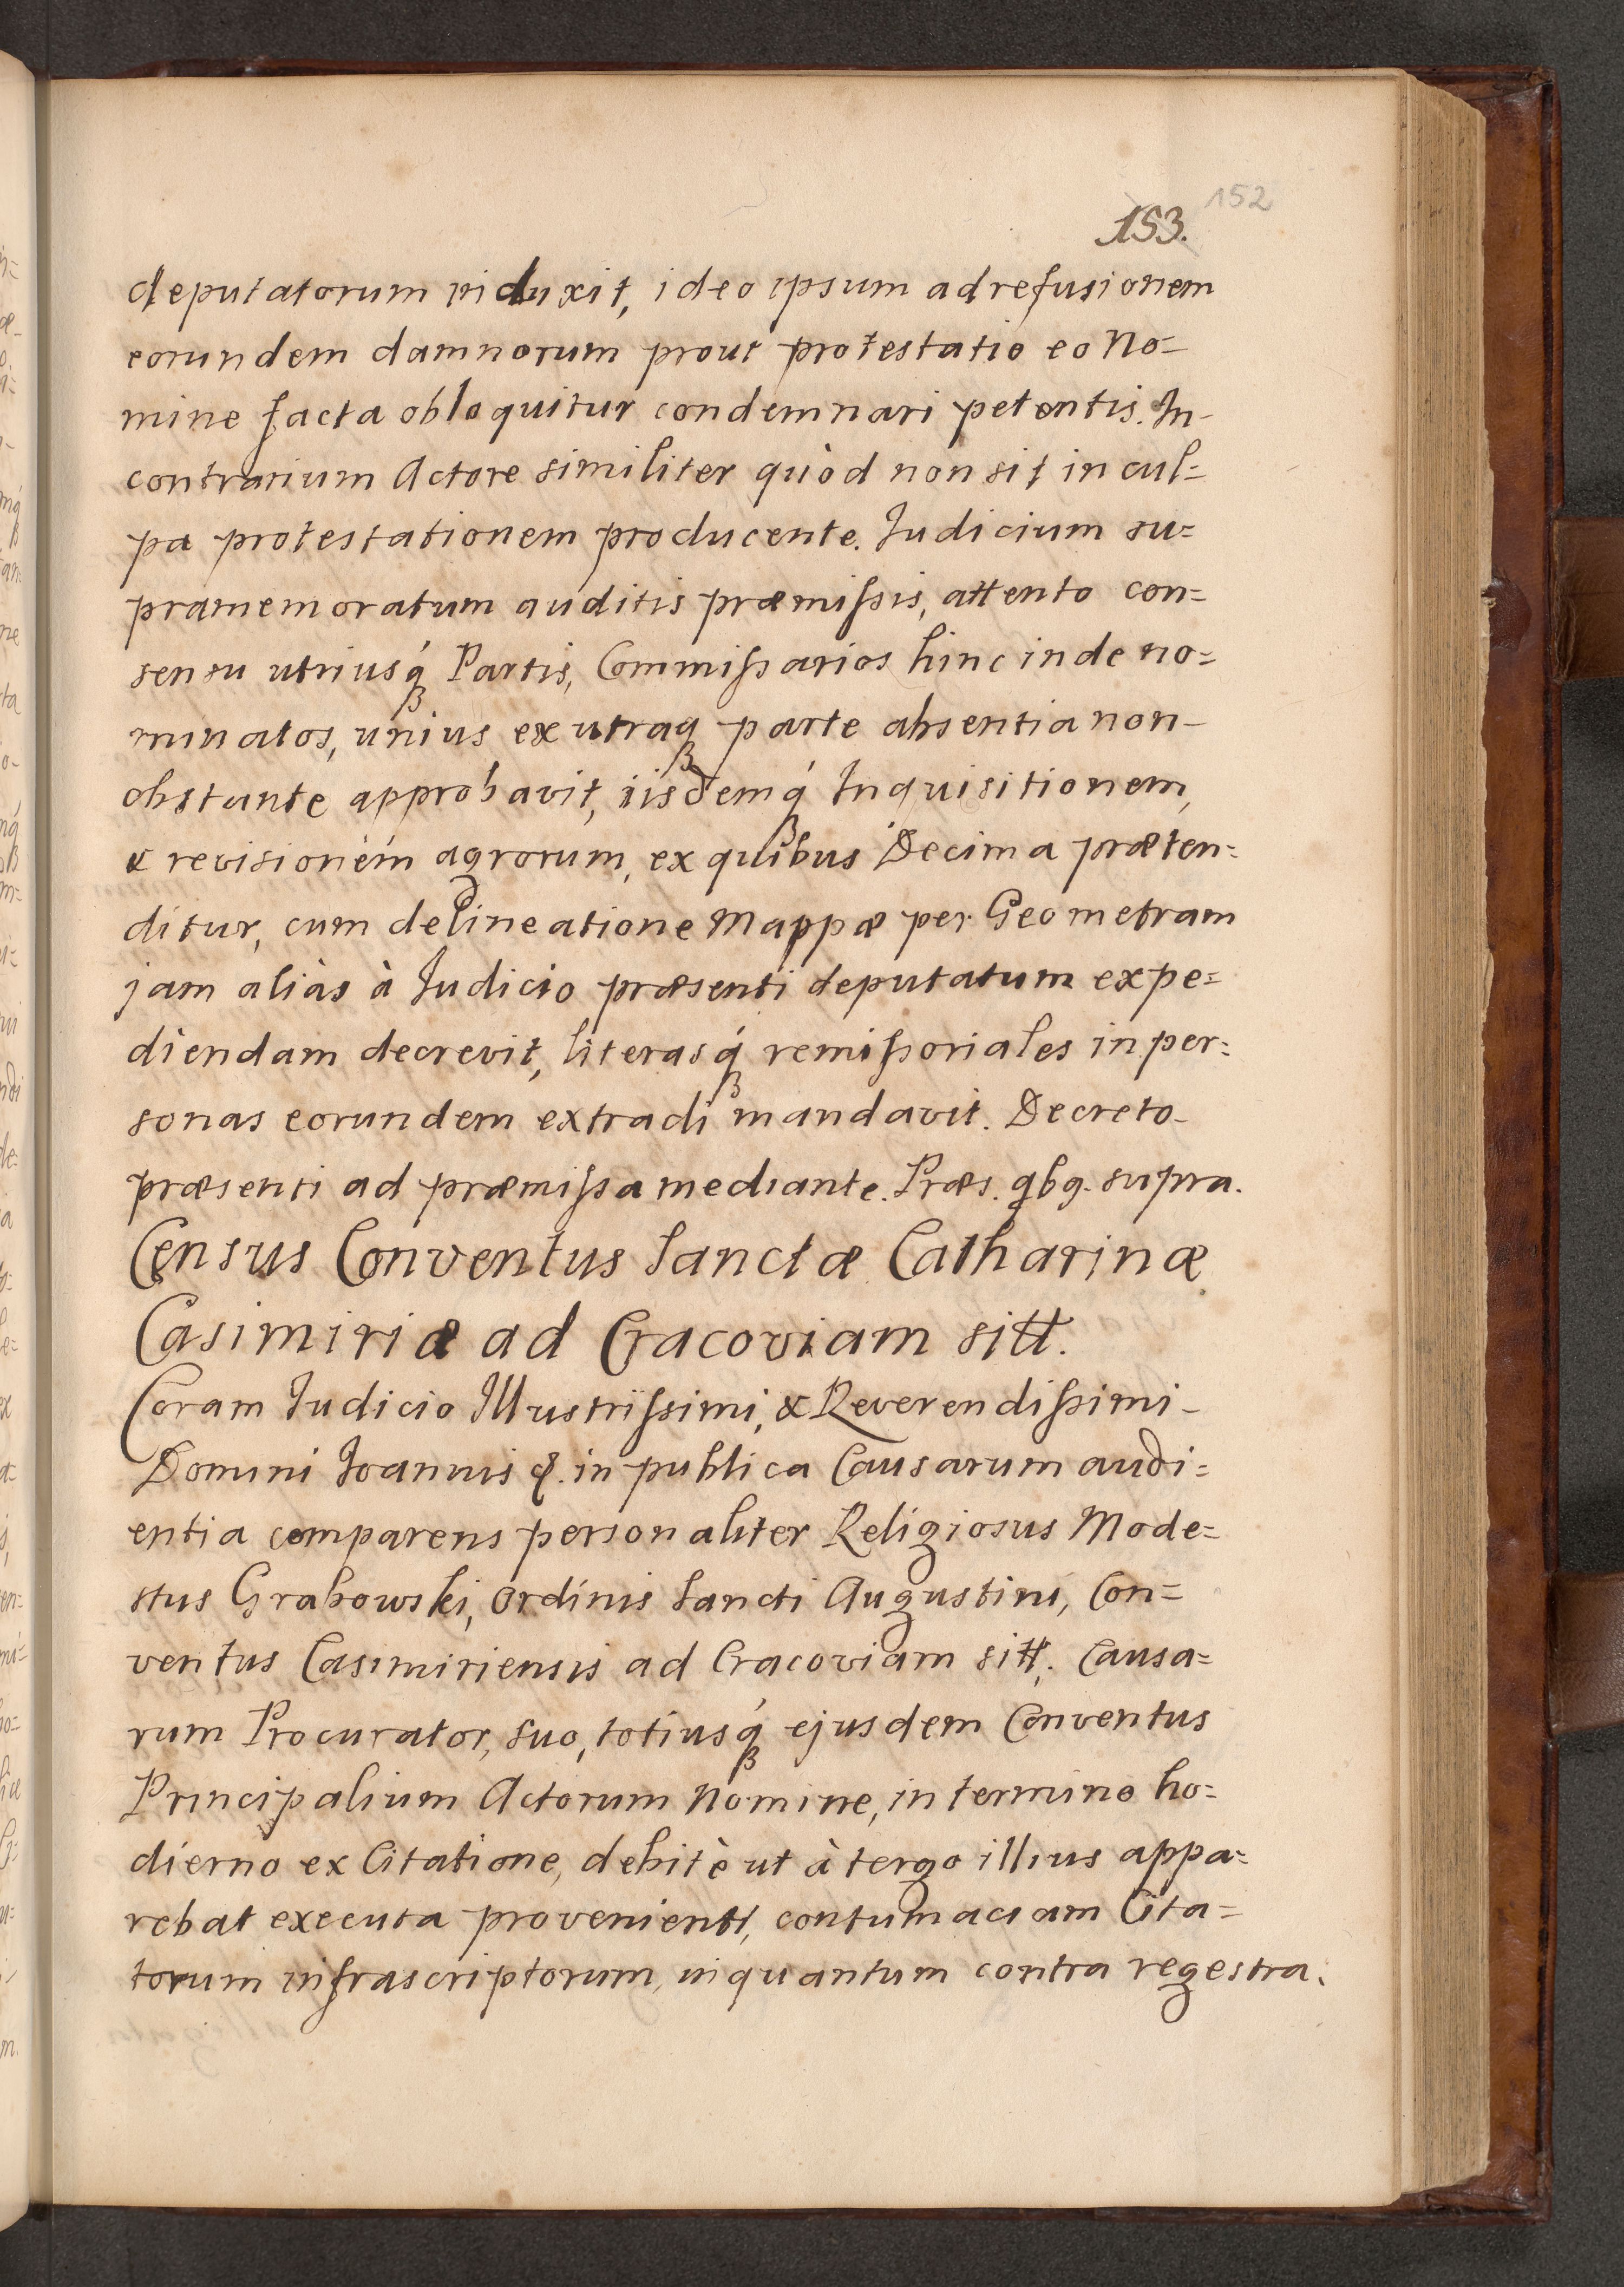 152
153.
deputatorum viduxit, ideo ipsum ad refusionem
eorundem damnorum prout protestatio eo No=
mine facta obloquitur condemnari petentis. In-
contrarium Actore similiter quòd non sit in cul=
pa protestationem producente. Iudicium su=
pramemoratum auditis præmissis, attento con=
sensu utriusq́ꝫ Partis, Commissarios hinc inde no=
minatos, unius ex utraqꝫ parte absentia non-
obstante approbavit, iisdemq́ꝫ Inquisitionem,
& revisionem agrorum, ex quibus Decima præten=
ditur, cum delineatione Mappæ per Geometram
jam aliàs à Iudicio præsenti deputatum expe=
diendam decrevit, literasq́ꝫ remissoriales in per=
sonas eorundem extradi mandavit. Decreto-
præsenti ad præmissa mediante. Præs. qbg. supra.
Census Conventus Sanctæ Catharinæ
Casimiriæ ad Cracoviam sitt.
Coram Iudicio Illustrissimi, & Reverendissimi-
Domini Ioannis &. in publica Causarum audi=
entia comparens personaliter Religiosus Mode=
stus Grabowski, Ordinis Sancti Augustini, Con=
ventus Casimiriensis ad Cracoviam sitt. Causa=
rum Procurator, suo, totiusq́ꝫ ejusdem Conventus
Principalium Actorum Nomine, in termino ho=
dierno ex Citatione, debitè ut à tergo illius appa=
rebat executa provenient, contumaciam Cita=
torum infrascriptorum, inquantum contra regestra.